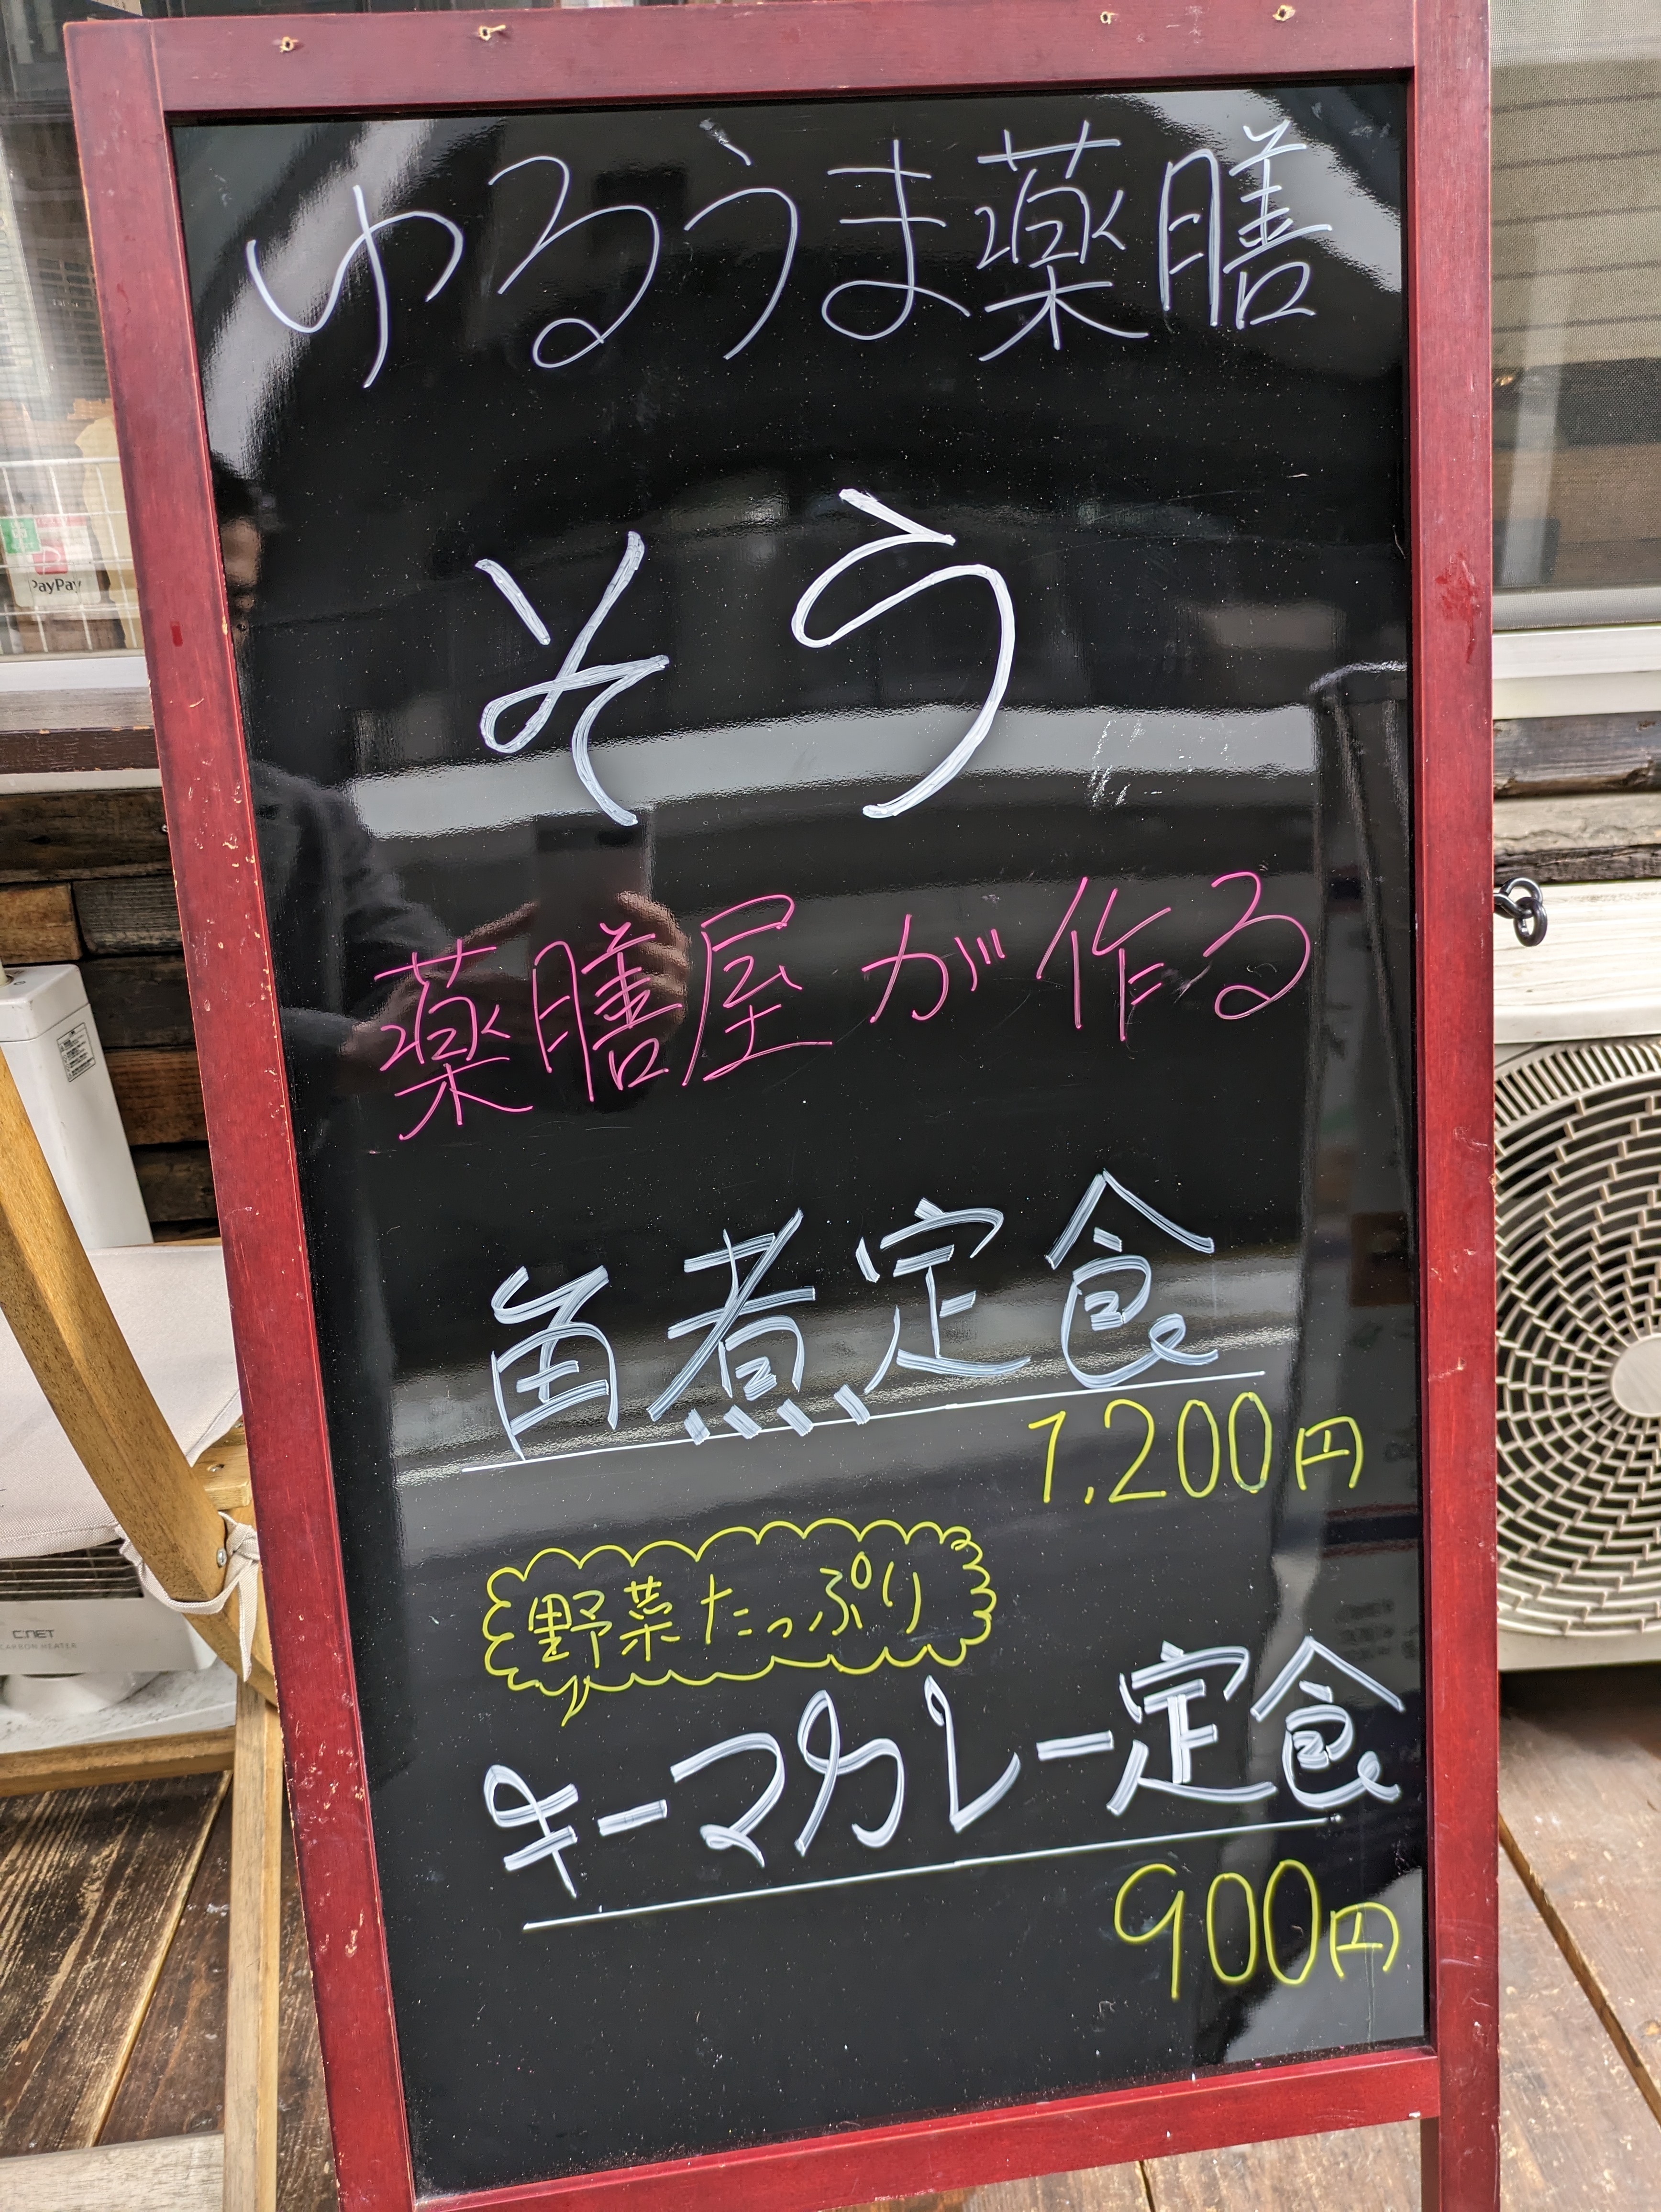 ゆるうま薬膳
そう
薬膳屋が作る
角煮定食
1,200円
野菜たっぷり
キーマカレー定食
900円
PayPay
C:NET
CARBON HEATER